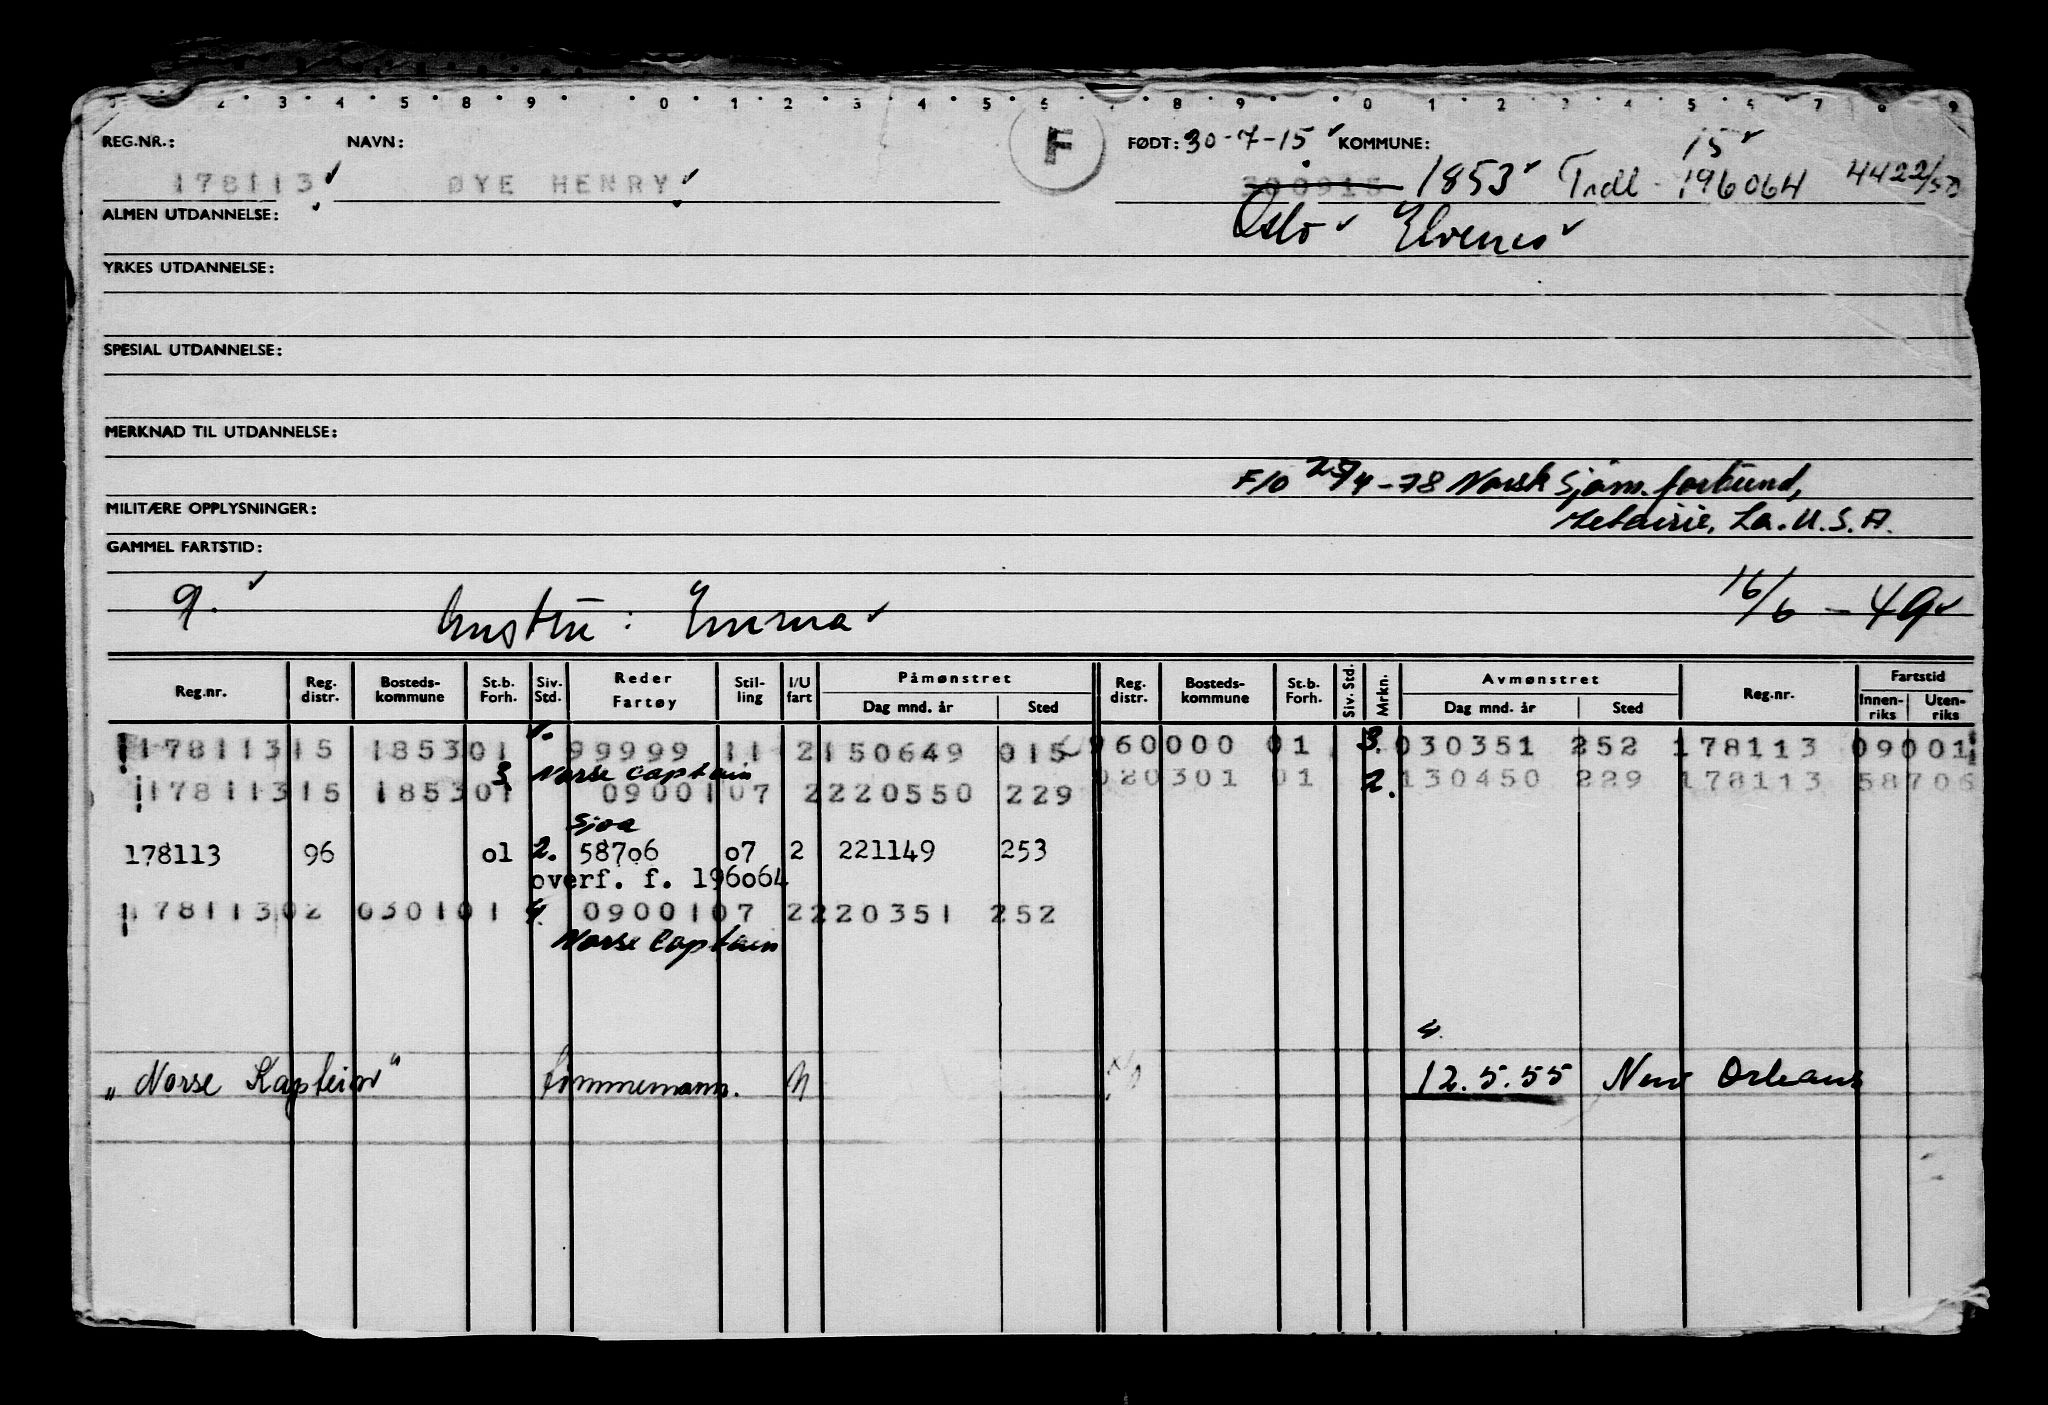 2 3 4 5 8 9 0 1 2 3 4 5 6 8 9 0 1 2 3 4 5 6 7 8 9
REG.NR.: NAVN: F FØDT: 30-7-15 KOMMUNE: 15
178113 ØYE HENRY 300915 1853 Trdl. 196064 4422/50
ALMEN UTDANNELSE: Oslo Elvenes
YRKES UTDANNELSE:
SPESIAL UTDANNELSE:
MERKNAD TIL UTDANNELSE:
F/O 25/4-78 Norsk Sjøm. forbund,
MILITÆRE OPPLYSNINGER: Metairie, La. U.S.A.
GAMMEL FARTSTID:
g. hustru: Emma 16/6 - 49
Reg.nr. Reg. distr. Bosteds-kommune St.b. Forh. Siv. Std. Reder Fartøy Stil-ling I/U fart Påmønstret Dag mnd. år Sted Reg. distr. Bosteds-kommune St.b. Forh. Siv. Std. Mrkn. Avmønstret Dag mnd. år Sted Reg.nr. Fartstid Innen-riks Uten-riks
178113 15 1853 01 1. 99999 11 2 150649 015 960000 01 3. 030351 252 178113 09001
3 Norse Captain 020301 01 2. 130450 229 178113 58706
178113 15 1853 01 09001 07 2 220550 229
Sjoa
178113 96 01 2. 58706 07 2 221149 253
overf. f. 196064
178113 02 030101 4. 09001 07 2 220351 252
Norse Captain
4.
"Norse Kaptein" tømmermann. U 12.5.55 New Orleans